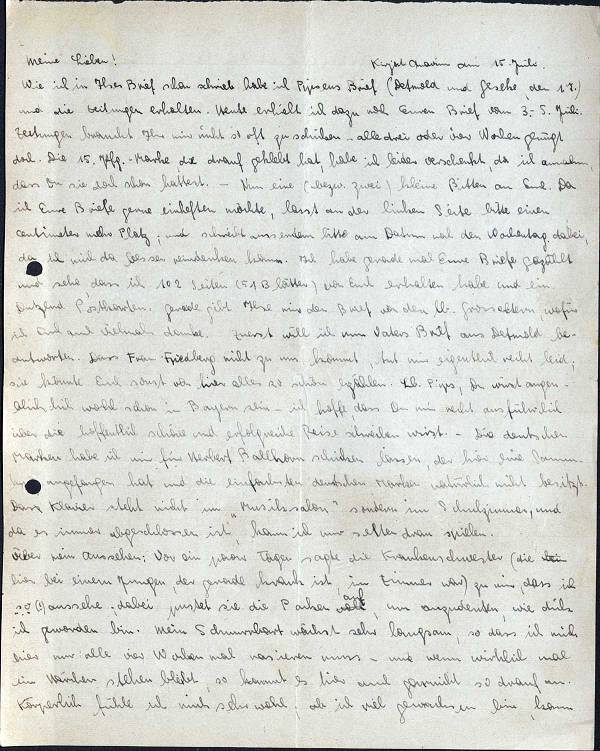 Meine Lieben! Kirjat Chaim am 15. Juli.
Wie ich in Ilses Brief schon schrieb habe ich Pipsens Brief (Detmold und Geseke, den 1.7.)
und die Zeitungen erhalten. Heute erhielt ich dazu noch Euren Brief vom 3.-5. Juli.
Zeitungen braucht Ihr mir nicht so oft zu schicken. alle drei oder vier Wochen genügt
doch. Die 15. Pfg.-Marke die drauf geklebt hat, habe ich leider verschenkt, da ich annahm,
dass Du sie doch schon hattest. – Nun eine (bezw. zwei) kleine Bitten an Euch. Da
ich Eure Briefe gerne einheften möchte, lasst an der linken Seite bitte einen
centimeter mehr Platz; und schreibt ausserdem bitte am Datum noch den Wochentag dabei,
da ich mich da besser reindenken kann. Ich habe gerade mal Eure Briefe gezählt
und sehe, dass ich 102 Seiten (51 Blätter) von Euch erhalten habe und ein
Dutzend Postkarten. Gerade gibt Ilse mir den Brief von den lb. Grosseltern, wofür
ich auch vielmals danke. Zuerst will ich nun Vaters Brief aus Detmold be-
antworten. Dass Frau Friedberg nicht zu uns kommt, tut mir eigentlich recht leid;
sie könnte Euch sonst von hier alles so schön erzählen. Lb. Pips, Du wirst augen-
blicklich wohl schon in Bayern sein – ich hoffe dass Du mir recht ausführlich
über die hoffentlich schöne und erfolgreiche Reise schreiben wirst. – Die deutschen
Marken habe ich mir für Herbert Ballhorn schicken lassen, der hier eine Samm-
lung angefangen hat und die einfachsten deutschen Marken natürlich nicht besitzt.
Das Klavier steht nicht im „Musiksalon" sondern im Schulzimmer, und
da es immer abgeschlossen ist, kann ich nur selten dran spielen.
Über mein Aussehen: Vor ein paar Tagen sagte die Krankenschwester (die
hier bei einem Jungen, der gerade krank ist, im Zimmer war) zu mir, dass ich
so (!) aussehe. dabei pustet sie die Backen auf, um anzudeuten, wie dick
ich geworden bin. Mein Schnurrbart wächst sehr langsam, so dass ich mich
hier nur alle vier Wochen mal rasieren muss – und wenn wirklich mal
ein Härchen stehen bleibt, so kommt es hier auch garnicht so drauf an.
Körperlich fühle ich mich sehr wohl; ob ich viel gewachsen bin, kann